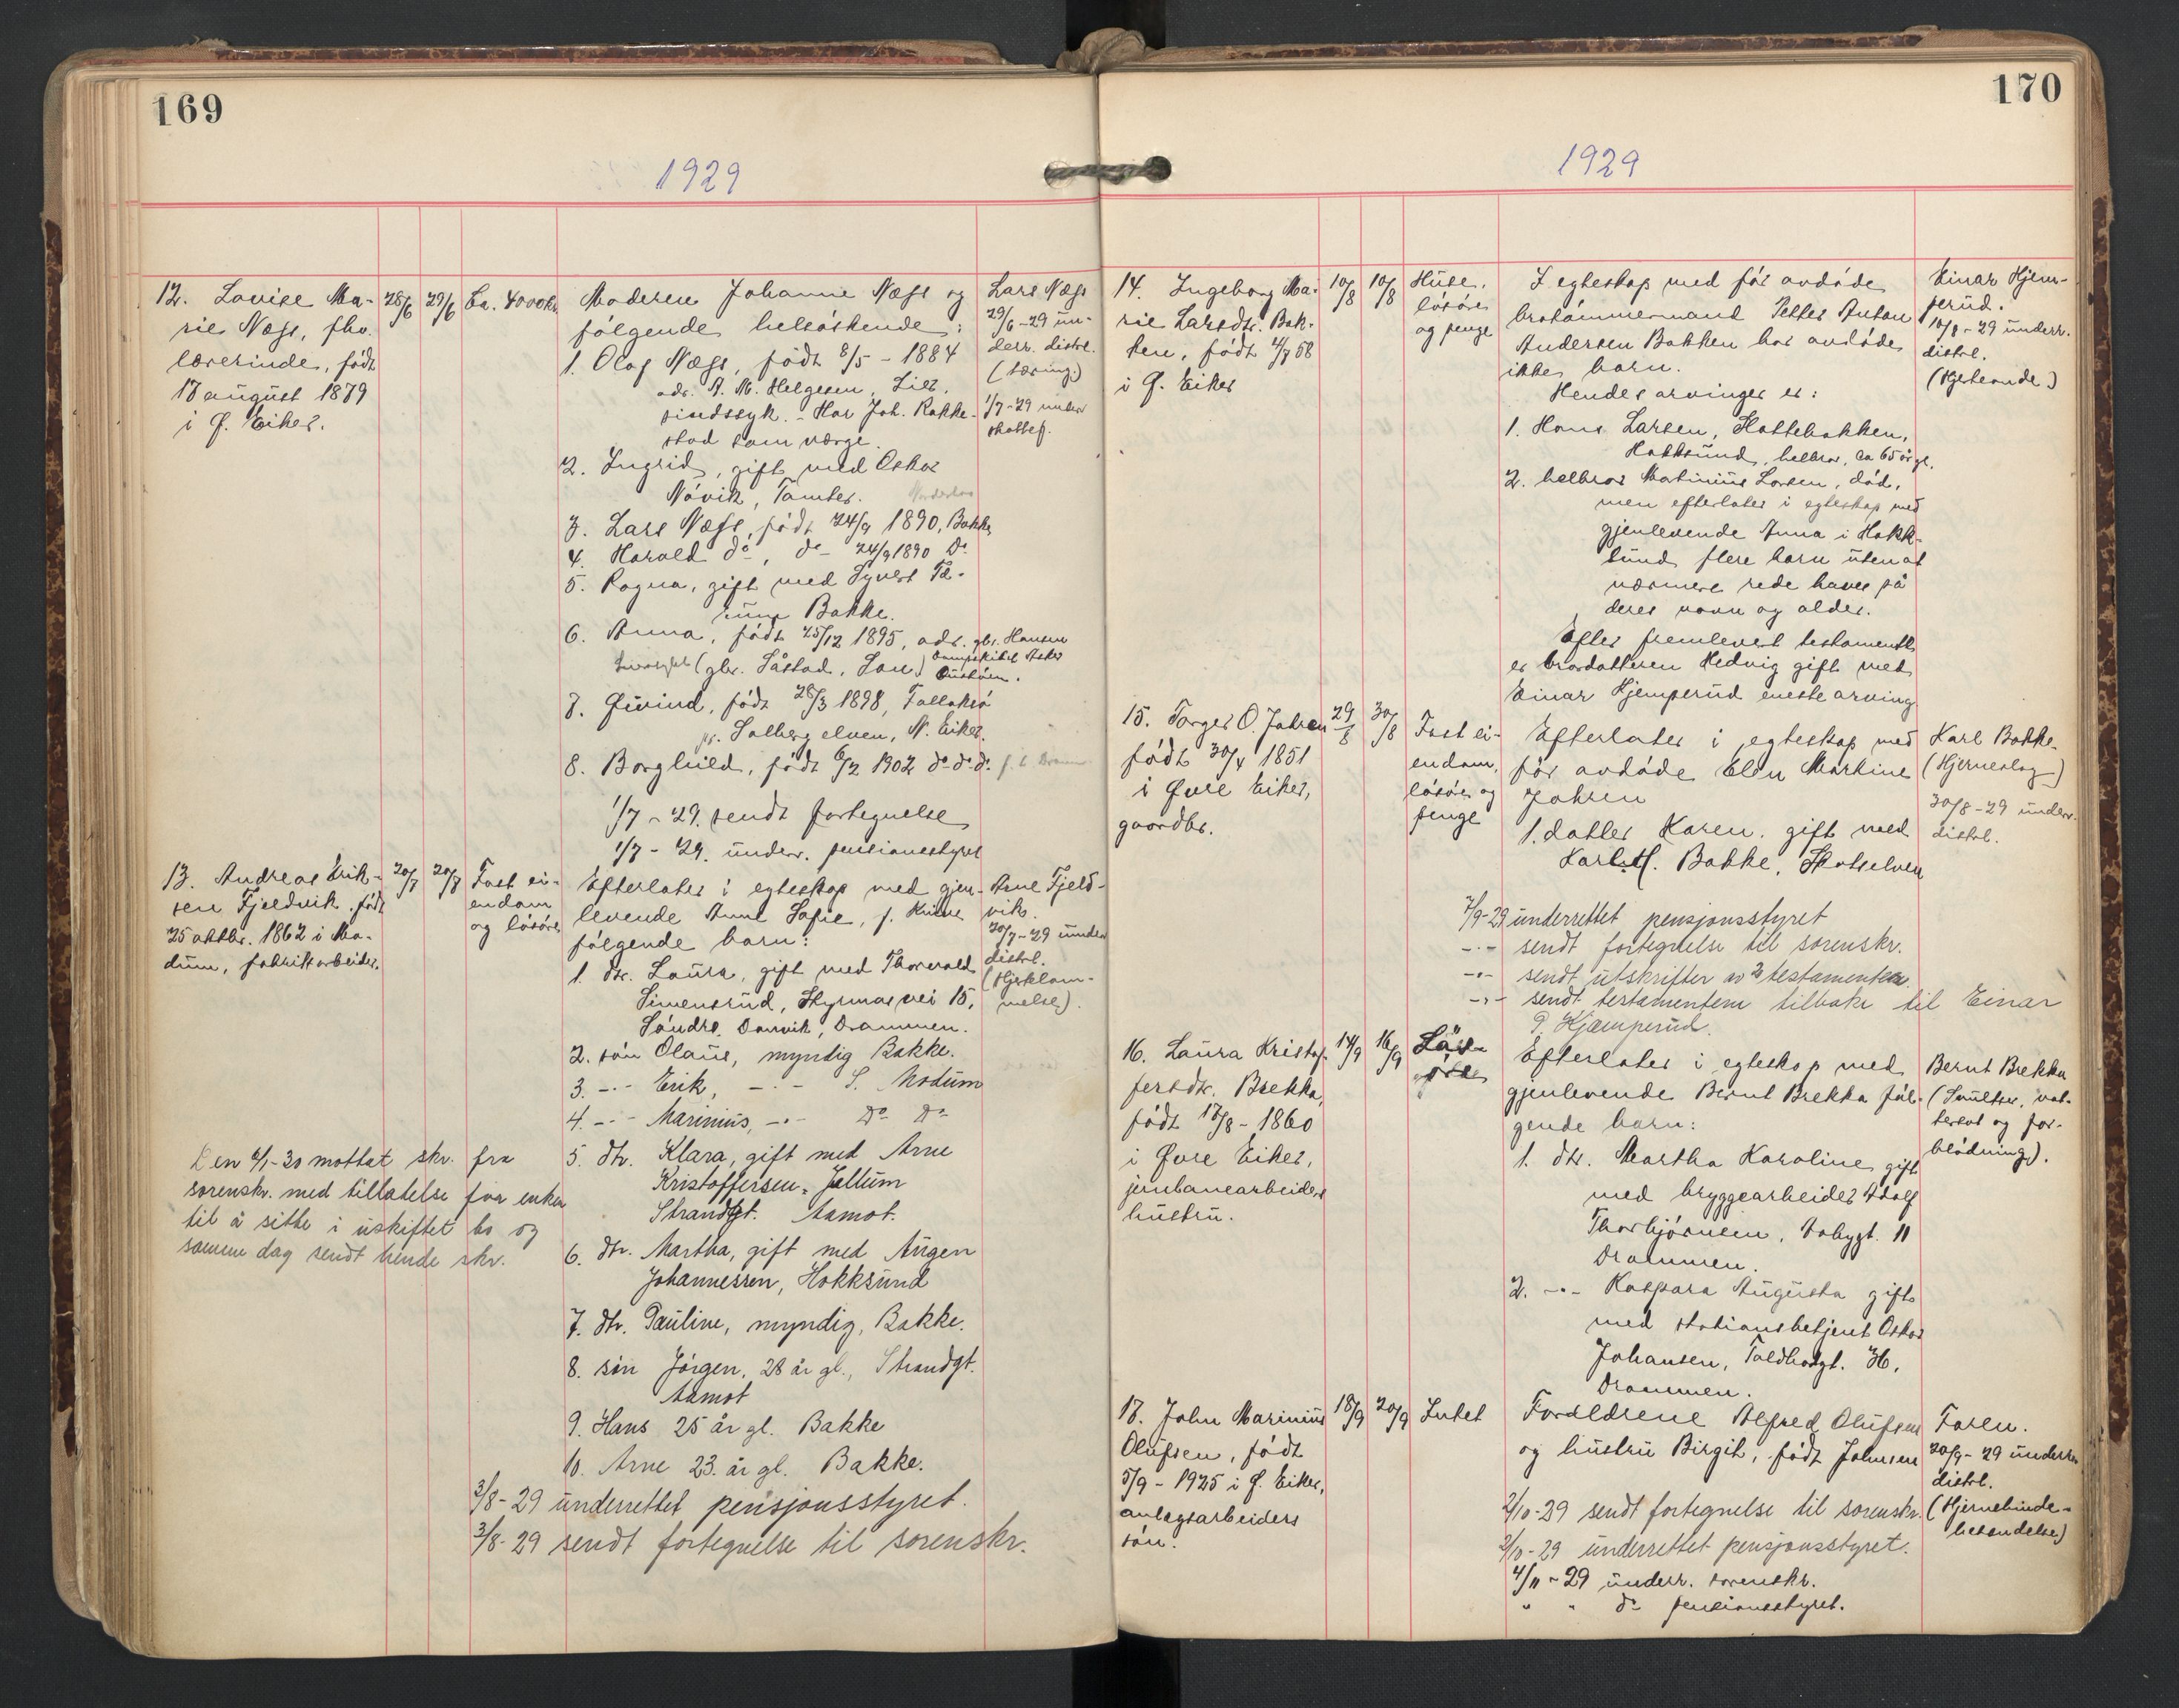 169
1929
12. Lovise Ma-
rie Næss, fhv.
lærerinde, født
17 august 1879
i Ø. Eiker.
28/6
29/6
Ca. 4000 kr.
Moderen Johanne Næss og
følgende helsøskende:
1. Olaf Næss, født 8/5 - 1884
adr. A. M. Helgesen, Lier,
sindssyk. - Har Joh. Rakke-
stad som værge.
2. Ingrid, gift med Oskar
Nøvik, Tamter.
3. Lars Næss, født 24/9 1890, Bakke
4. Harald do, do - 24/9 1890 Do
5. Ragna, gift med
Bakke.
6. Anna, født 25/12 1895, adr. gbr. Hansen
(gbr. Såstad, Lane) Dampskibet Asker
7. Øivind, født 28/3 1898,
pr. Solbergelven, N. Eiker.
8. Borghild, født 6/2 1902 do do do
1/7 - 29. sendt fortegnelse
1/7 - 29. underr. pensionsstyret
Lars Næss
29/6 - 29 un-
derr. distrl.
(tæring.)
1/7 - 29 underr
skattef.
13. Andreas Erik-
sen Fjeldvik, født
25 oktbr. 1862 i Mo-
dum, fabrikkarbeider.
20/7
20/7
Fast ei-
endom
og løsøre
Efterlater i egteskap med gjen-
levende Anne Sofie, f.
følgende barn:
1. dtr. Laura, gift med Thorvald
Simensrud, Styrmosvei 15,
Søndre Danvik, Drammen.
2. søn Olaus, myndig Bakke.
3. -"- Erik, -"- S. Modum
4. -"- Marinius, -"- Do Do
5. dtr. Klara, gift med Arne
Kristoffersen, Jellum
Strandgt. Aamot.
6. dtr. Martha, gift med Augen
Johannessen, Hokksund
7. dtr. Pauline, myndig, Bakke.
8. søn Jørgen, 28 år gl., Strandgt.
Aamot
9. Hans 25 år gl. Bakke
10. Arne 23. år gl. Bakke.
3/8-29 underrettet pensjonsstyret.
3/8-29 sendt fortegnelse til sorenskr.
Arne Fjeld-
vik.
20/7 - 29 underr
distrl.
(Hjertelam-
melse).
Den 6/1-30 mottat skr. fra
sorenskr. med tillatelse for enken
til å sitte i uskiftet bo og
samme dag sendt hende skr.
170
1929
14. Ingeborg Ma-
rie Larsdtr. Bak-
ken, født 4/7 58
i Ø. Eiker
10/8
10/8
Huse,
løsøre
og penge
I egteskap med før avdøde
brotømmermand Petter Anton
Andersen Bakken har avdøde
ikke barn.
Hendes arvinger er:
1. Hans Larsen, Hattebakken,
Hokksund, helbror, ca 65 år gl.
2. helbror Matinius Larsen, død,
men efterlater i egteskap med
gjenlevende Anna i Hokk-
sund flere barn uten at
nærmere rede haves på
deres navn og alder.
Efter fremlevert testamente
er brordatteren Hedvig gift med
Einar Hjemperud eneste arving
Einar Hjem-
perud.
10/8 - 29 underr.
distrl.
(Hjerteonde.)
15. Torger O. Johsen
født 30/4 1851
i Øvre Eiker,
gaardbr.
29/8
30/8
Fast ei-
endom,
løsøre og
penge
Efterlater i egteskap med
før avdøde Elen Martine
Johsen
1. datter Karen. gift med
Karl H. Bakke, Skotselven
Karl Bakke
(Hjerneslag)
30/8 - 29 underr.
distrl.
7/9-29 underrettet pensjonsstyret
-"- sendt fortegnelse til sorenskr.
-"- sendt utskrifter av 2 testamenter.
-"- sendt testamentene tilbake til Einar
P. Hjæmperud.
16. Laura Kristof-
fersdtr. Brekka,
født 17/8 - 1860
i Øvre Eiker,
jernbanearbeiders
hustru.
14/9
16/9
Løs-
øre
Efterlater i egteskap med
gjenlevende Bernt Brekka føl-
gende barn:
1. dtr. Martha Karoline gift
med bryggearbeider Adolf
Thorbjørnsen, 11
Drammen.
2. -"- Kaspara Augusta gift
med stationsbetjent Oskar
Johansen, Toldbodgt. 36,
Drammen.
Bernt Brekka
(Svulster, vat-
tersot og for-
blødning).
17. John Marinius
Olufsen, født
5/9 - 1925 i Ø. Eiker,
anlægsarbeiders
søn.
18/9
20/9
Intet
Forældrene Alfred Olufsen
og hustru Birgit, født Johnsen
2/10-29 sendt fortegnelse til sorenskr.
2/10-29 underrettet pensjonsstyret.
4/11 - 29 underr. sorenskr.
" " do pensionsstyret.
Faren.
20/9 - 29 underr
distrl.
(Hjernehinde-
betændelse)